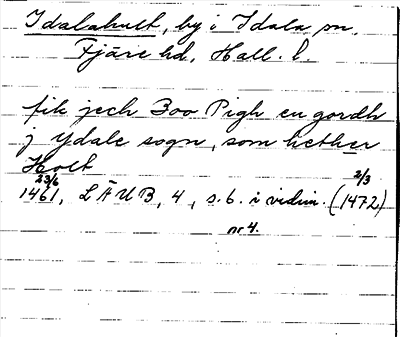 Idalahult, by i Idala sn,
Fjäre hd, Hall. l.
fik jech Boo Pigh en gordh
j Ydale sogn, som hether
Holt
23/6 2/3
1461, LÄUB, 4, s. 6. i vidim. (1472)
nr 4.